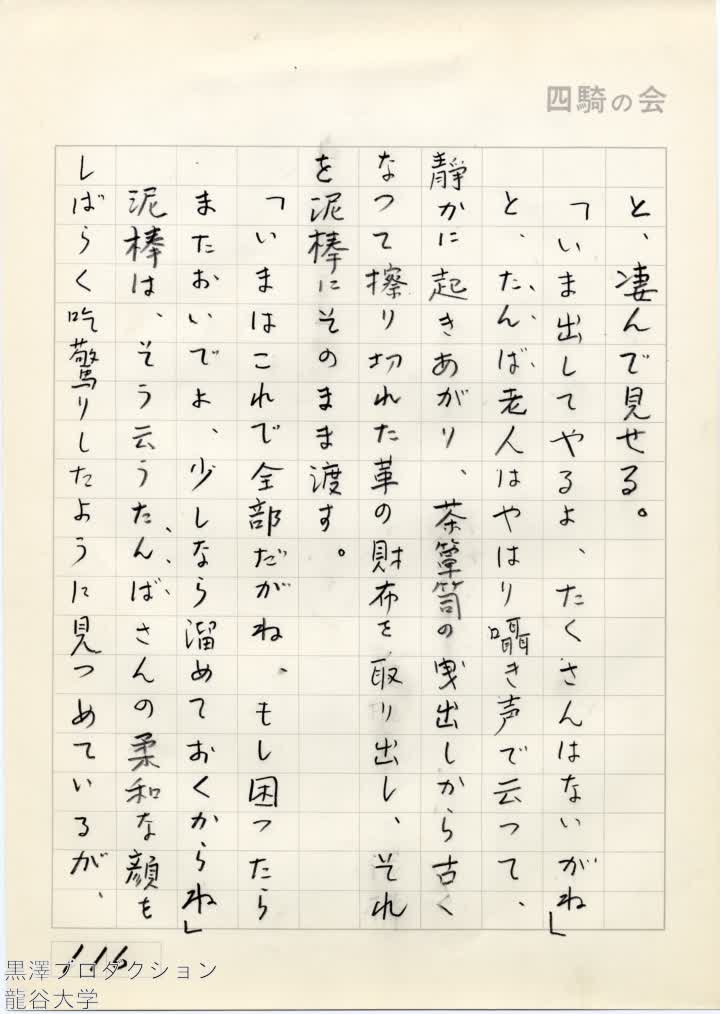 四騎の会
と、凄んで見せる。
「いま出してやるよ、たくさんはないがね」
と、たんば老人はやはり囁き声で云って、
静かに起きあがり、茶簞笥の曳出しから古く
なって擦り切れた革の財布を取り出し、それ
を泥棒にそのまま渡す。
「いまはこれで全部だがね、もし困ったら
またおいでよ、少しなら溜めておくからね」
泥棒は、そう云うたんばさんの柔和な顔を
しばらく吃驚りしたように見つめているが、
116
黒澤プロダクション
龍谷大学